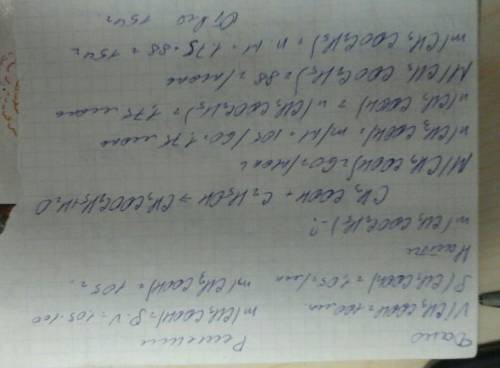 Дано
Решение
V(CH₃COOH)=100мл.
m(CH₃COOH)=ρ·V=1,05·100
ρ(CH₃COOH)=1,05г/мл
m(CH₃COOH)=105г.
Найти
m(CH₃COOC₂H₅)-?
CH₃COOH + C₂H₅OH → CH₃COOC₂H₅+H₂O
M(CH₃COOH)=60г/моль
n(CH₃COOH)=m/M=105/60=1,75 моль
n(CH₃COOH)=n(CH₃COOC₂H₅)=1,75 моль
M(CH₃COOC₂H₅)=88г/моль
m(CH₃COOC₂H₅)=n·M=1,75·88=154г
Ответ 154г.